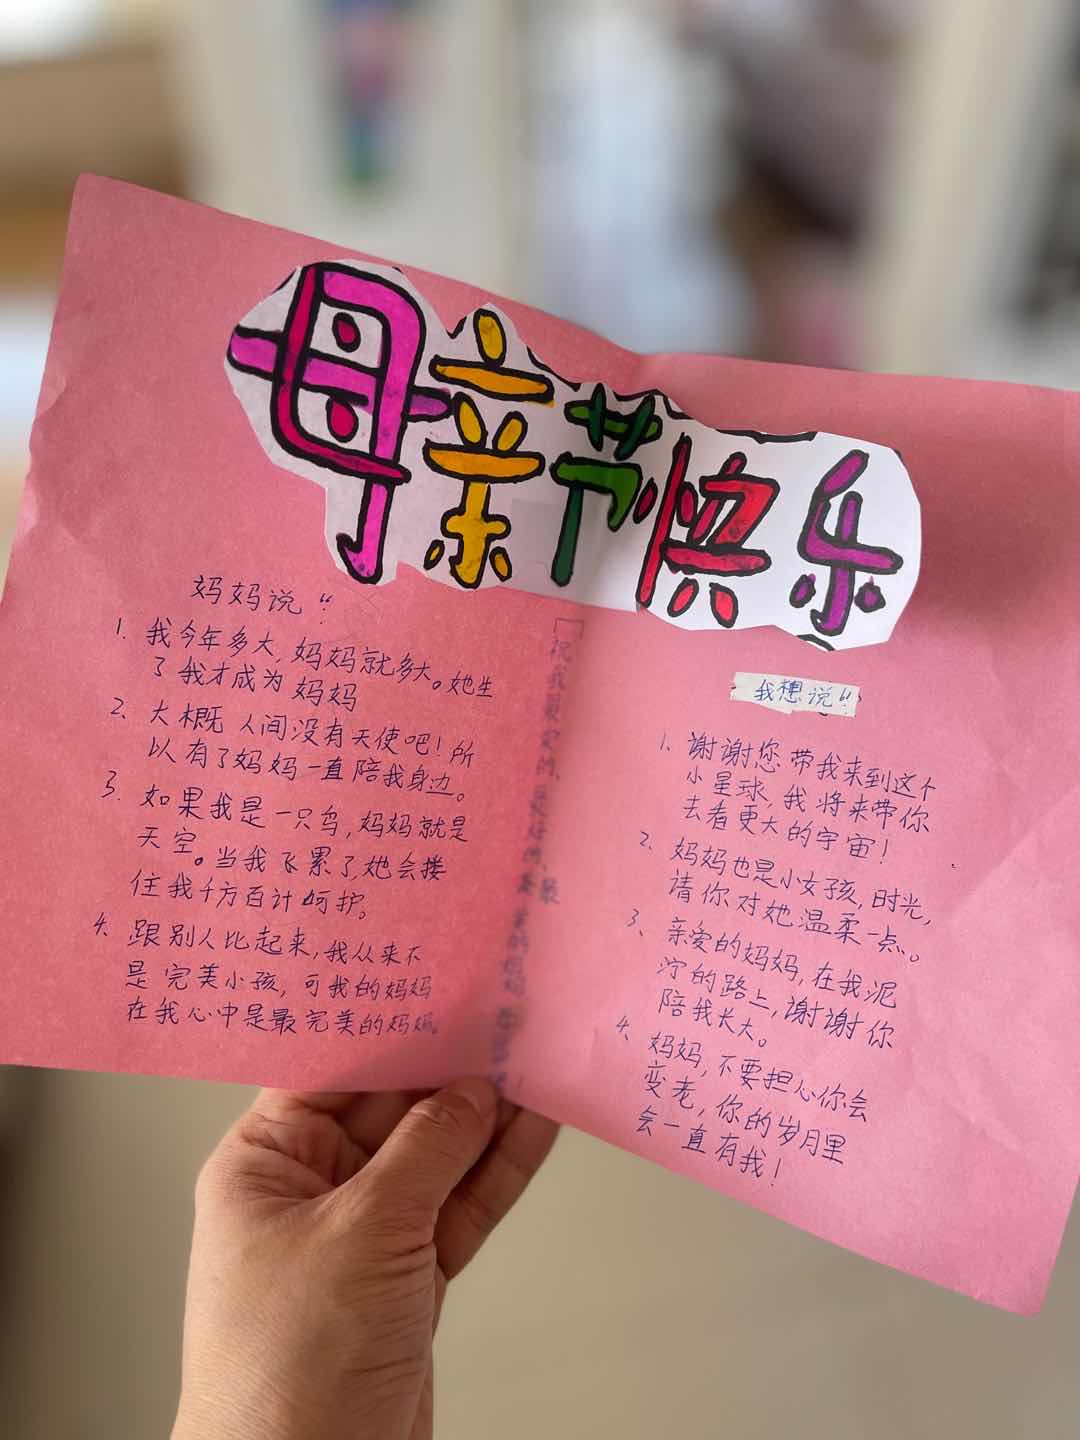 母亲节快乐
妈妈说“
1. 我今年多大,妈妈就多大。她生
了我才成为妈妈
2. 大概人间没有天使吧!所
以有了妈妈一直陪我身边。
3. 如果我是一只鸟,妈妈就是
天空。当我飞累了,她会搂
住我千方百计呵护。
4. 跟别人比起来,我从来不
是完美小孩,可我的妈妈
在我心中是最完美的妈妈。
我想说“
1. 谢谢您带我来到这个
小星球,我将来带你
去看更大的宇宙!
2. 妈妈也是小女孩,时光,
请你对她温柔一点。
3、亲爱的妈妈,在我泥
泞的路上,谢谢你
陪我长大。
4. 妈妈,不要担心你会
变老,你的岁月里
会一直有我!